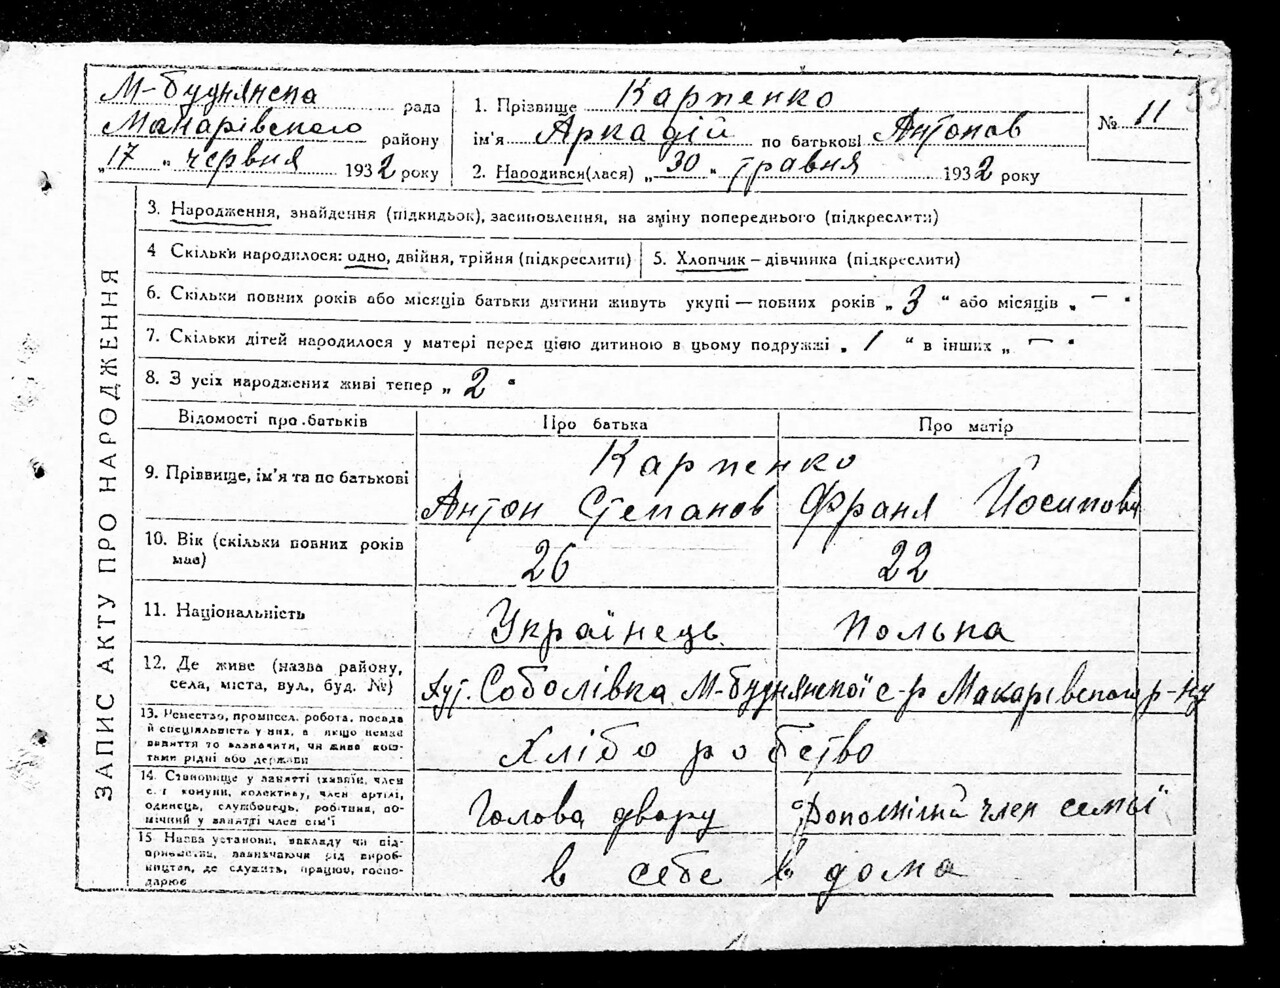 53
М-Буднянска рада
Макарівского району
„17 „ червня 1932 року
1. Прізвище Карпенко
ім'я Аркадій по батькові Антонов
2. Народився(лася) „30 „ травня 1932 року
№ 11
ЗАПИС АКТУ ПРО НАРОДЖЕННЯ
3. Народження, знайдення (підкидьок), засиновлення, на зміну попереднього (підкреслити)
4 Скільки народилося: одно, двійня, трійня (підкреслити)
5. Хлопчик – дівчинка (підкреслити)
6. Скільки повних років або місяців батьки дитини живуть укупі — повних років „ 3 " або місяців „ — "
7. Скільки дітей народилося у матері перед цією дитиною в цьому подружжі „ 1 " в інших „ — "
8. З усіх народжених живі тепер „ 2 "
Відомості про батьків Про батька Про матір
9. Прізвище, ім'я та по батькові
Карпенко
Антон Степанов Франя Йосиповн
10. Вік (скільки повних років має)
26 22
11. Національність Українець Полька
12. Де живе (назва району,
села, міста, вул., буд. №)
Хут. Соболівка М-Буднянскої с-р Макарівського р-ну
13. Ремество, промисел, робота, посада
й спеціяльність у них, а якщо немає
заняття то зазначити, чи живе кош-
тами рідні або держави
Хліборобство
14. Становище у занятті (хазяїн, член
с. г комуни, колективу, член артілі,
одинець, службовець, робітник, по-
мічний у занятті член сім'ї
Голова двору Допоміжний член семьї
15 Назва установи, закладу чи під-
приємства, зазначаючи рід вироб-
ництва, де служить, працює, госпо-
дарює
в себе в дома